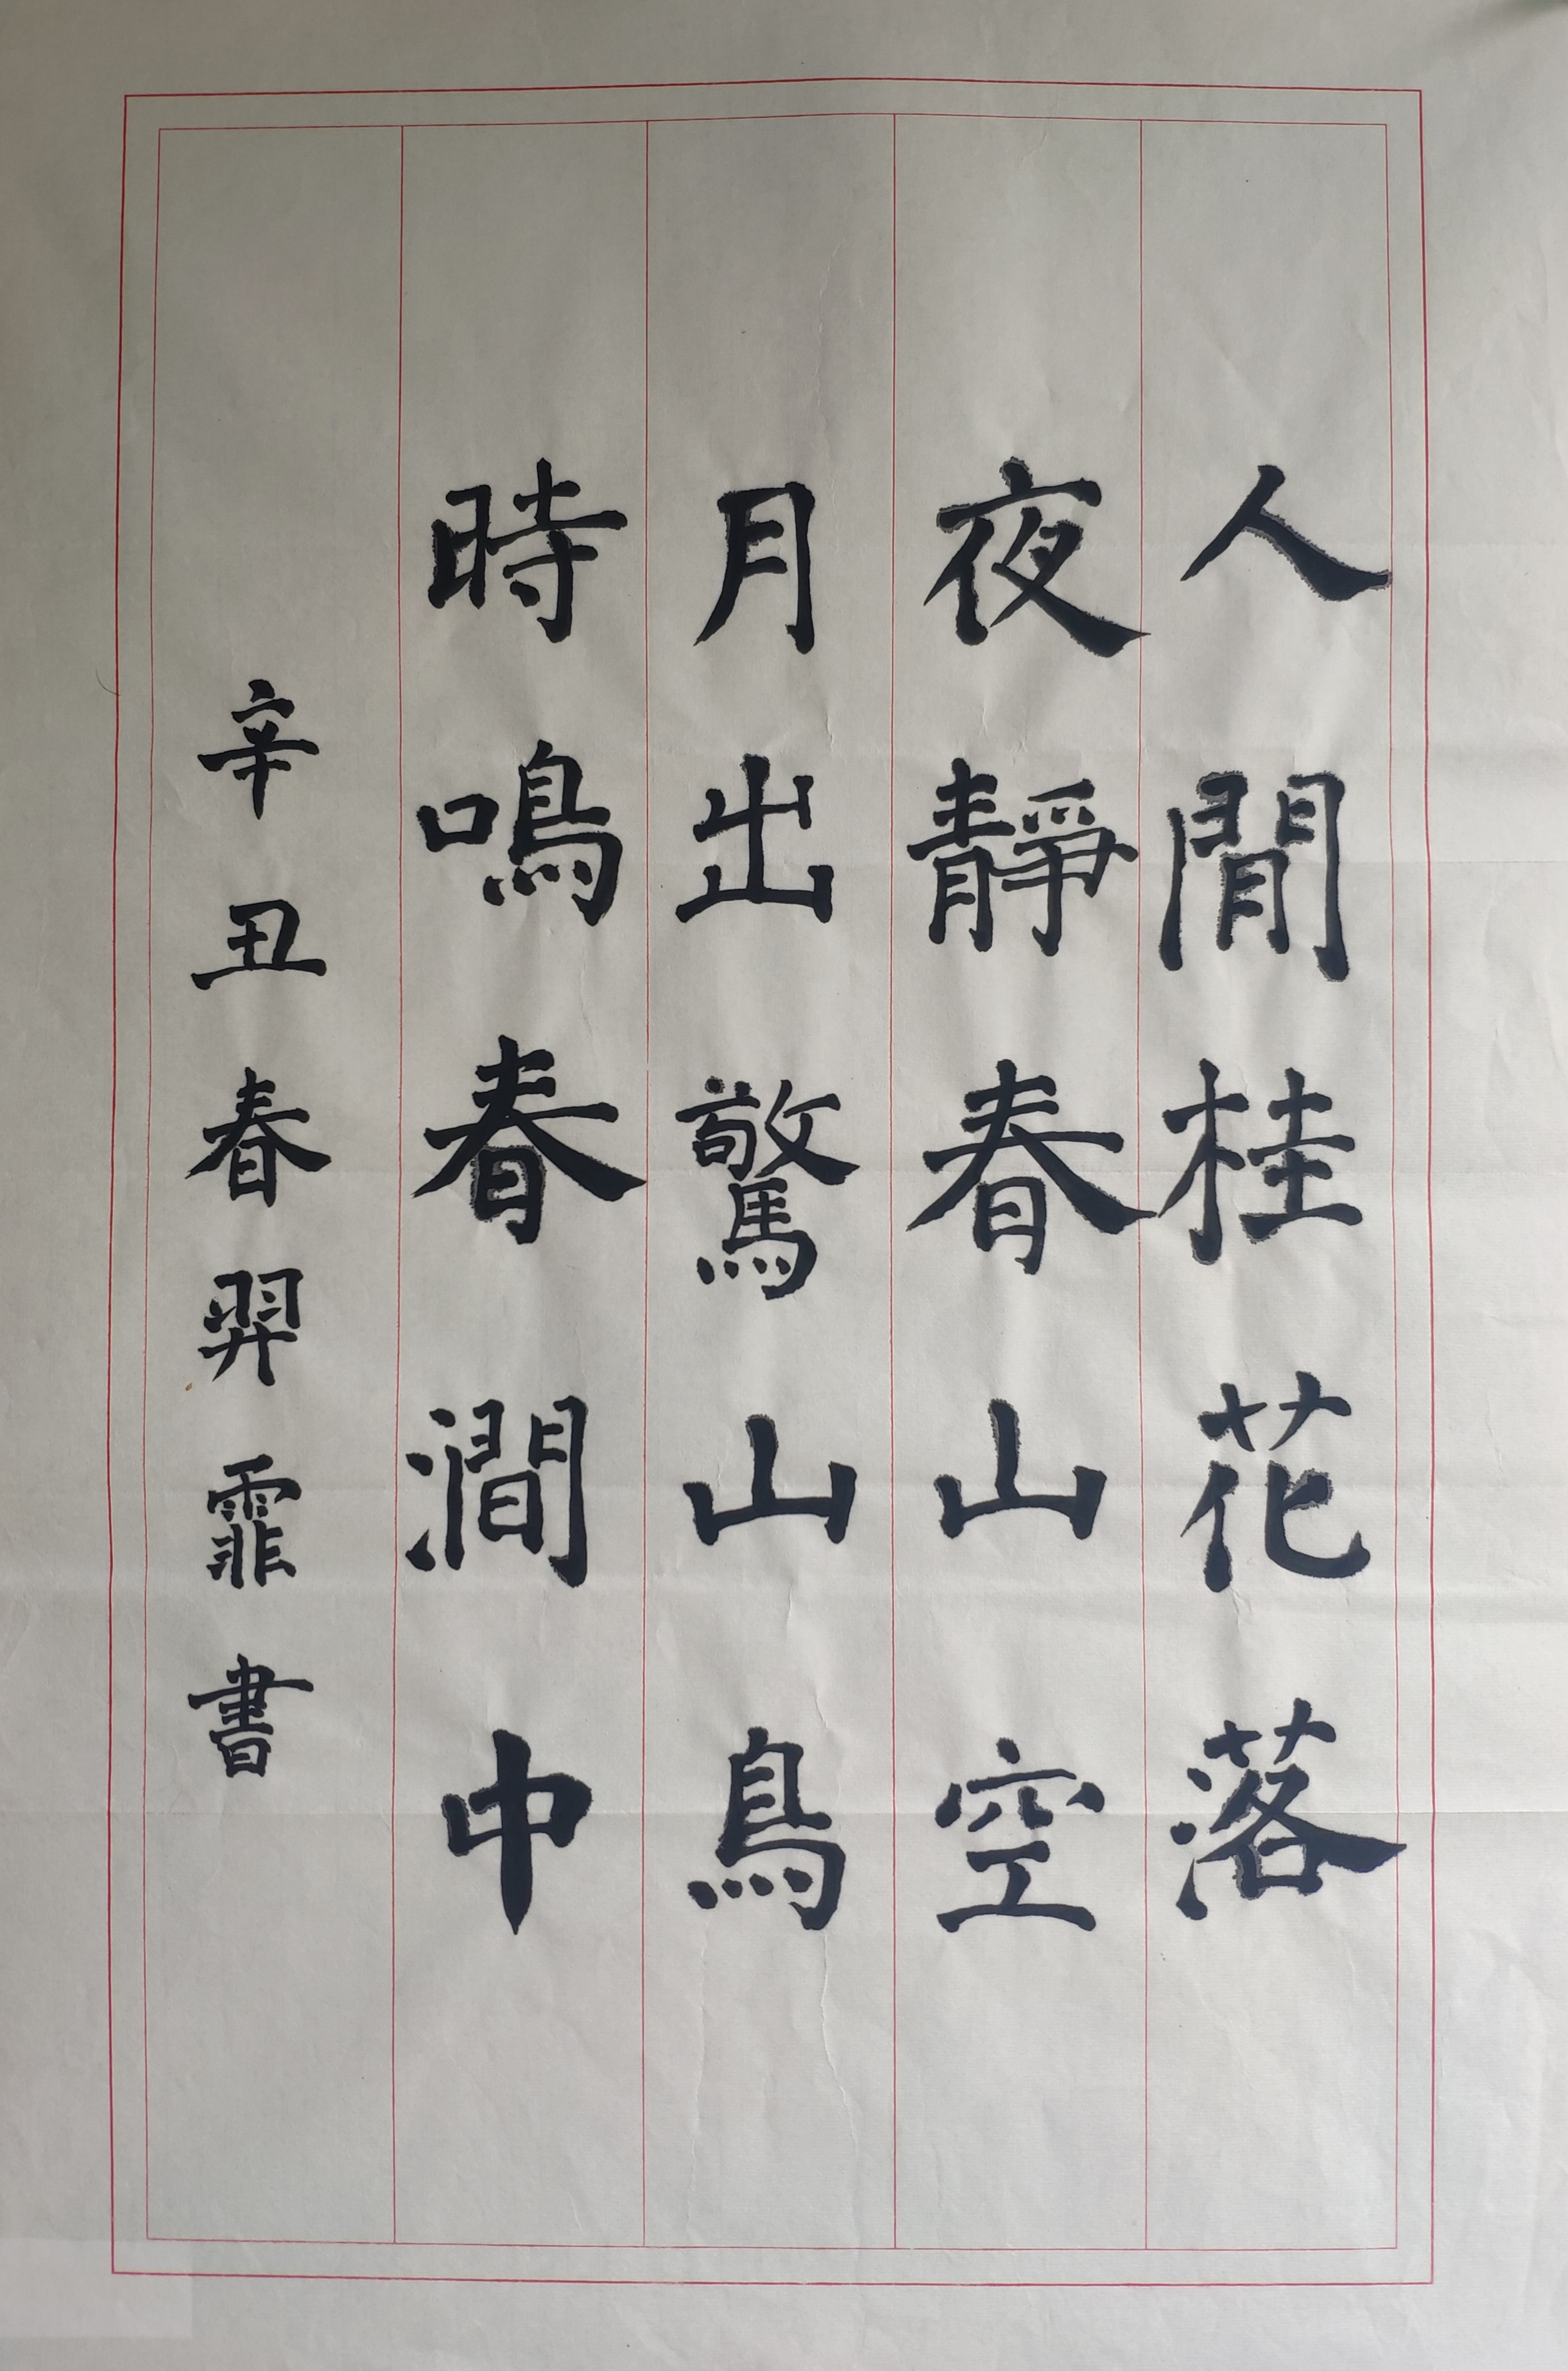 人閒桂花落
夜靜春山空
月出驚山鳥
時鳴春澗中
辛丑春羿霏書